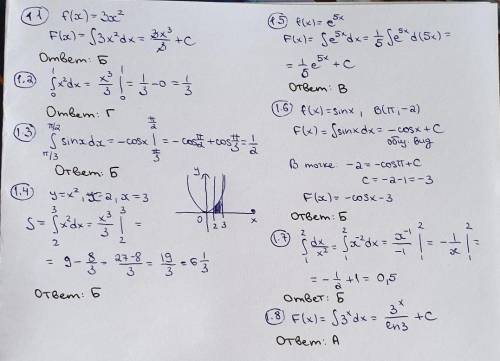 1.1 f(x) = 3x²
F(x) = ∫3x²dx = 3x³/3 + C
Ответ: Б
1.2 ∫₀¹ x²dx = x³/3 |₀¹ = 1/3 - 0 = 1/3
Ответ: Г
1.3 ∫_{π/3}^{π/2} sinxdx = -cosx |_{π/3}^{π/2} = -cos π/2 + cos π/3 = 1/2
Ответ: Б
1.4 y = x², x = 2, x = 3
S = ∫₂³ x²dx = x³/3 |₂³ =
= 9 - 8/3 = (27-8)/3 = 19/3 = 6 1/3
Ответ: Б
y
2 3 x
1.5 f(x) = e^{5x}
F(x) = ∫e^{5x}dx = 1/5 ∫e^{5x}d(5x) =
= 1/5 e^{5x} + C
Ответ: В
1.6 f(x) = sinx, B(π, -2)
F(x) = ∫sinxdx = -cosx + C
общ. вид
В точке -2 = -cosπ + C
C = -2 - 1 = -3
F(x) = -cosx - 3
Ответ: Б
1.7 ∫₁² dx/x² = ∫₁² x⁻²dx = x⁻¹/-1 |₁² = -1/x |₁² =
= -1/2 + 1 = 0,5
Ответ: Б
1.8 F(x) = ∫3ˣdx = 3ˣ/ln3 + C
Ответ: А